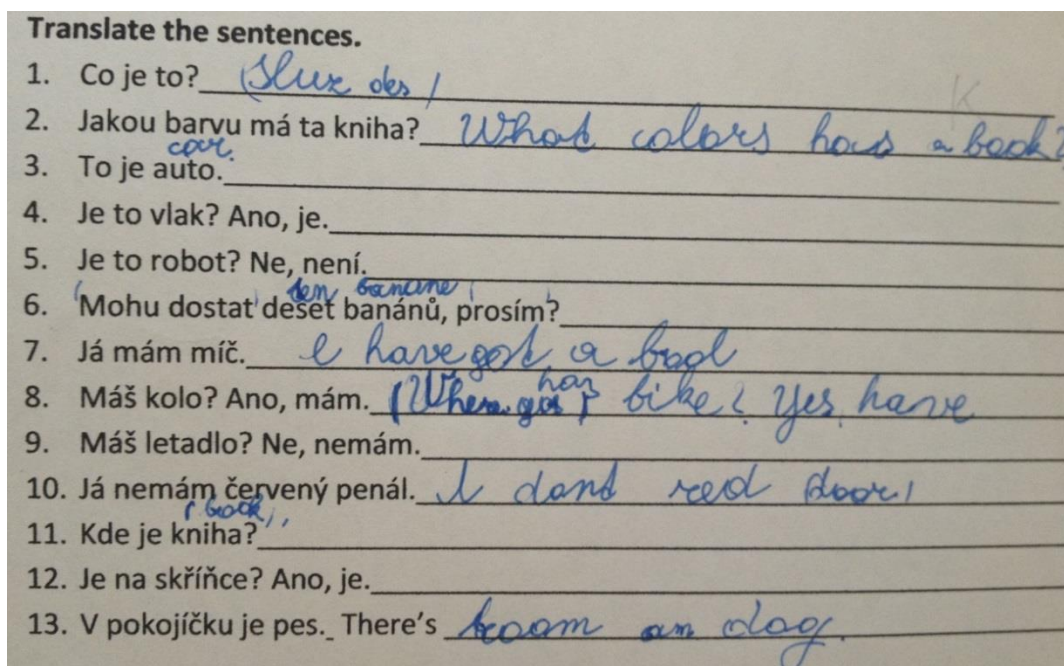 Translate the sentences.
1. Co je to? (Slux des)
2. Jakou barvu má ta kniha? What colors has a book?
car.
3. To je auto.
4. Je to vlak? Ano, je.
5. Je to robot? Ne, není.
ten banane
6. Mohu dostat deset banánů, prosím?
7. Já mám míč. I have got a bool
has
8. Máš kolo? Ano, mám. bike? Yes, have
9. Máš letadlo? Ne, nemám.
10. Já nemám červený penál. I dont red (door)
(book)
11. Kde je kniha?
12. Je na skříňce? Ano, je.
13. V pokojíčku je pes. There's room am dog.